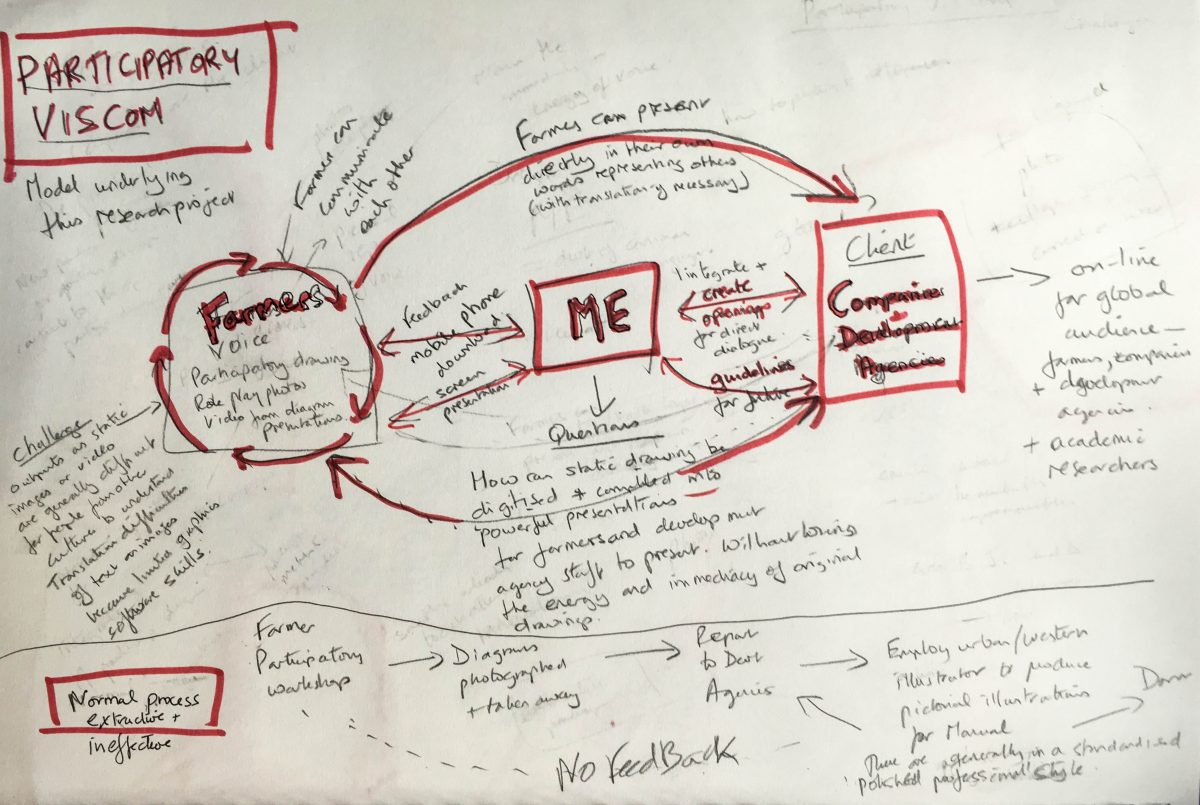 PARTICIPATORY
VISCOM
Model underlying
this research project
Farmer can
communicate
with
each other
Farmes can present
directly in their own
words representing others
(with translation if necessary)
Farmers
Voice
Participatory drawing
Role play photos
Video from diagram
presentations.
Feedback
mobile phone
download
screen
presentation
ME
I integrate +
create
openings
for direct
dialogue
guidelines
for future
Client
Companies
+
Development
Agencies
on-line
for global
audience –
farmers, companies
+ development
agencies.
+ academic
researchers
Challenge
outputs as static
images or video
are generally difficult
for people from other
cultures to understand
Translation difficulties
of text on images
because limited graphics
software skills.
Questions
How can static drawing be
digitised + combined into
powerful presentations
for farmers and development
agency staff to present. Without losing
the energy and immediacy of original
drawings.
Normal process
extractive +
ineffective
Farmer
Participatory
workshop
Diagrams
photographed
+ taken away
Report
to Devt
Agencies
Employ urban/western
illustrator to produce
pictorial illustrations
for Manual
These are generally in a standardised
'polished professional' style.
No FeedBack